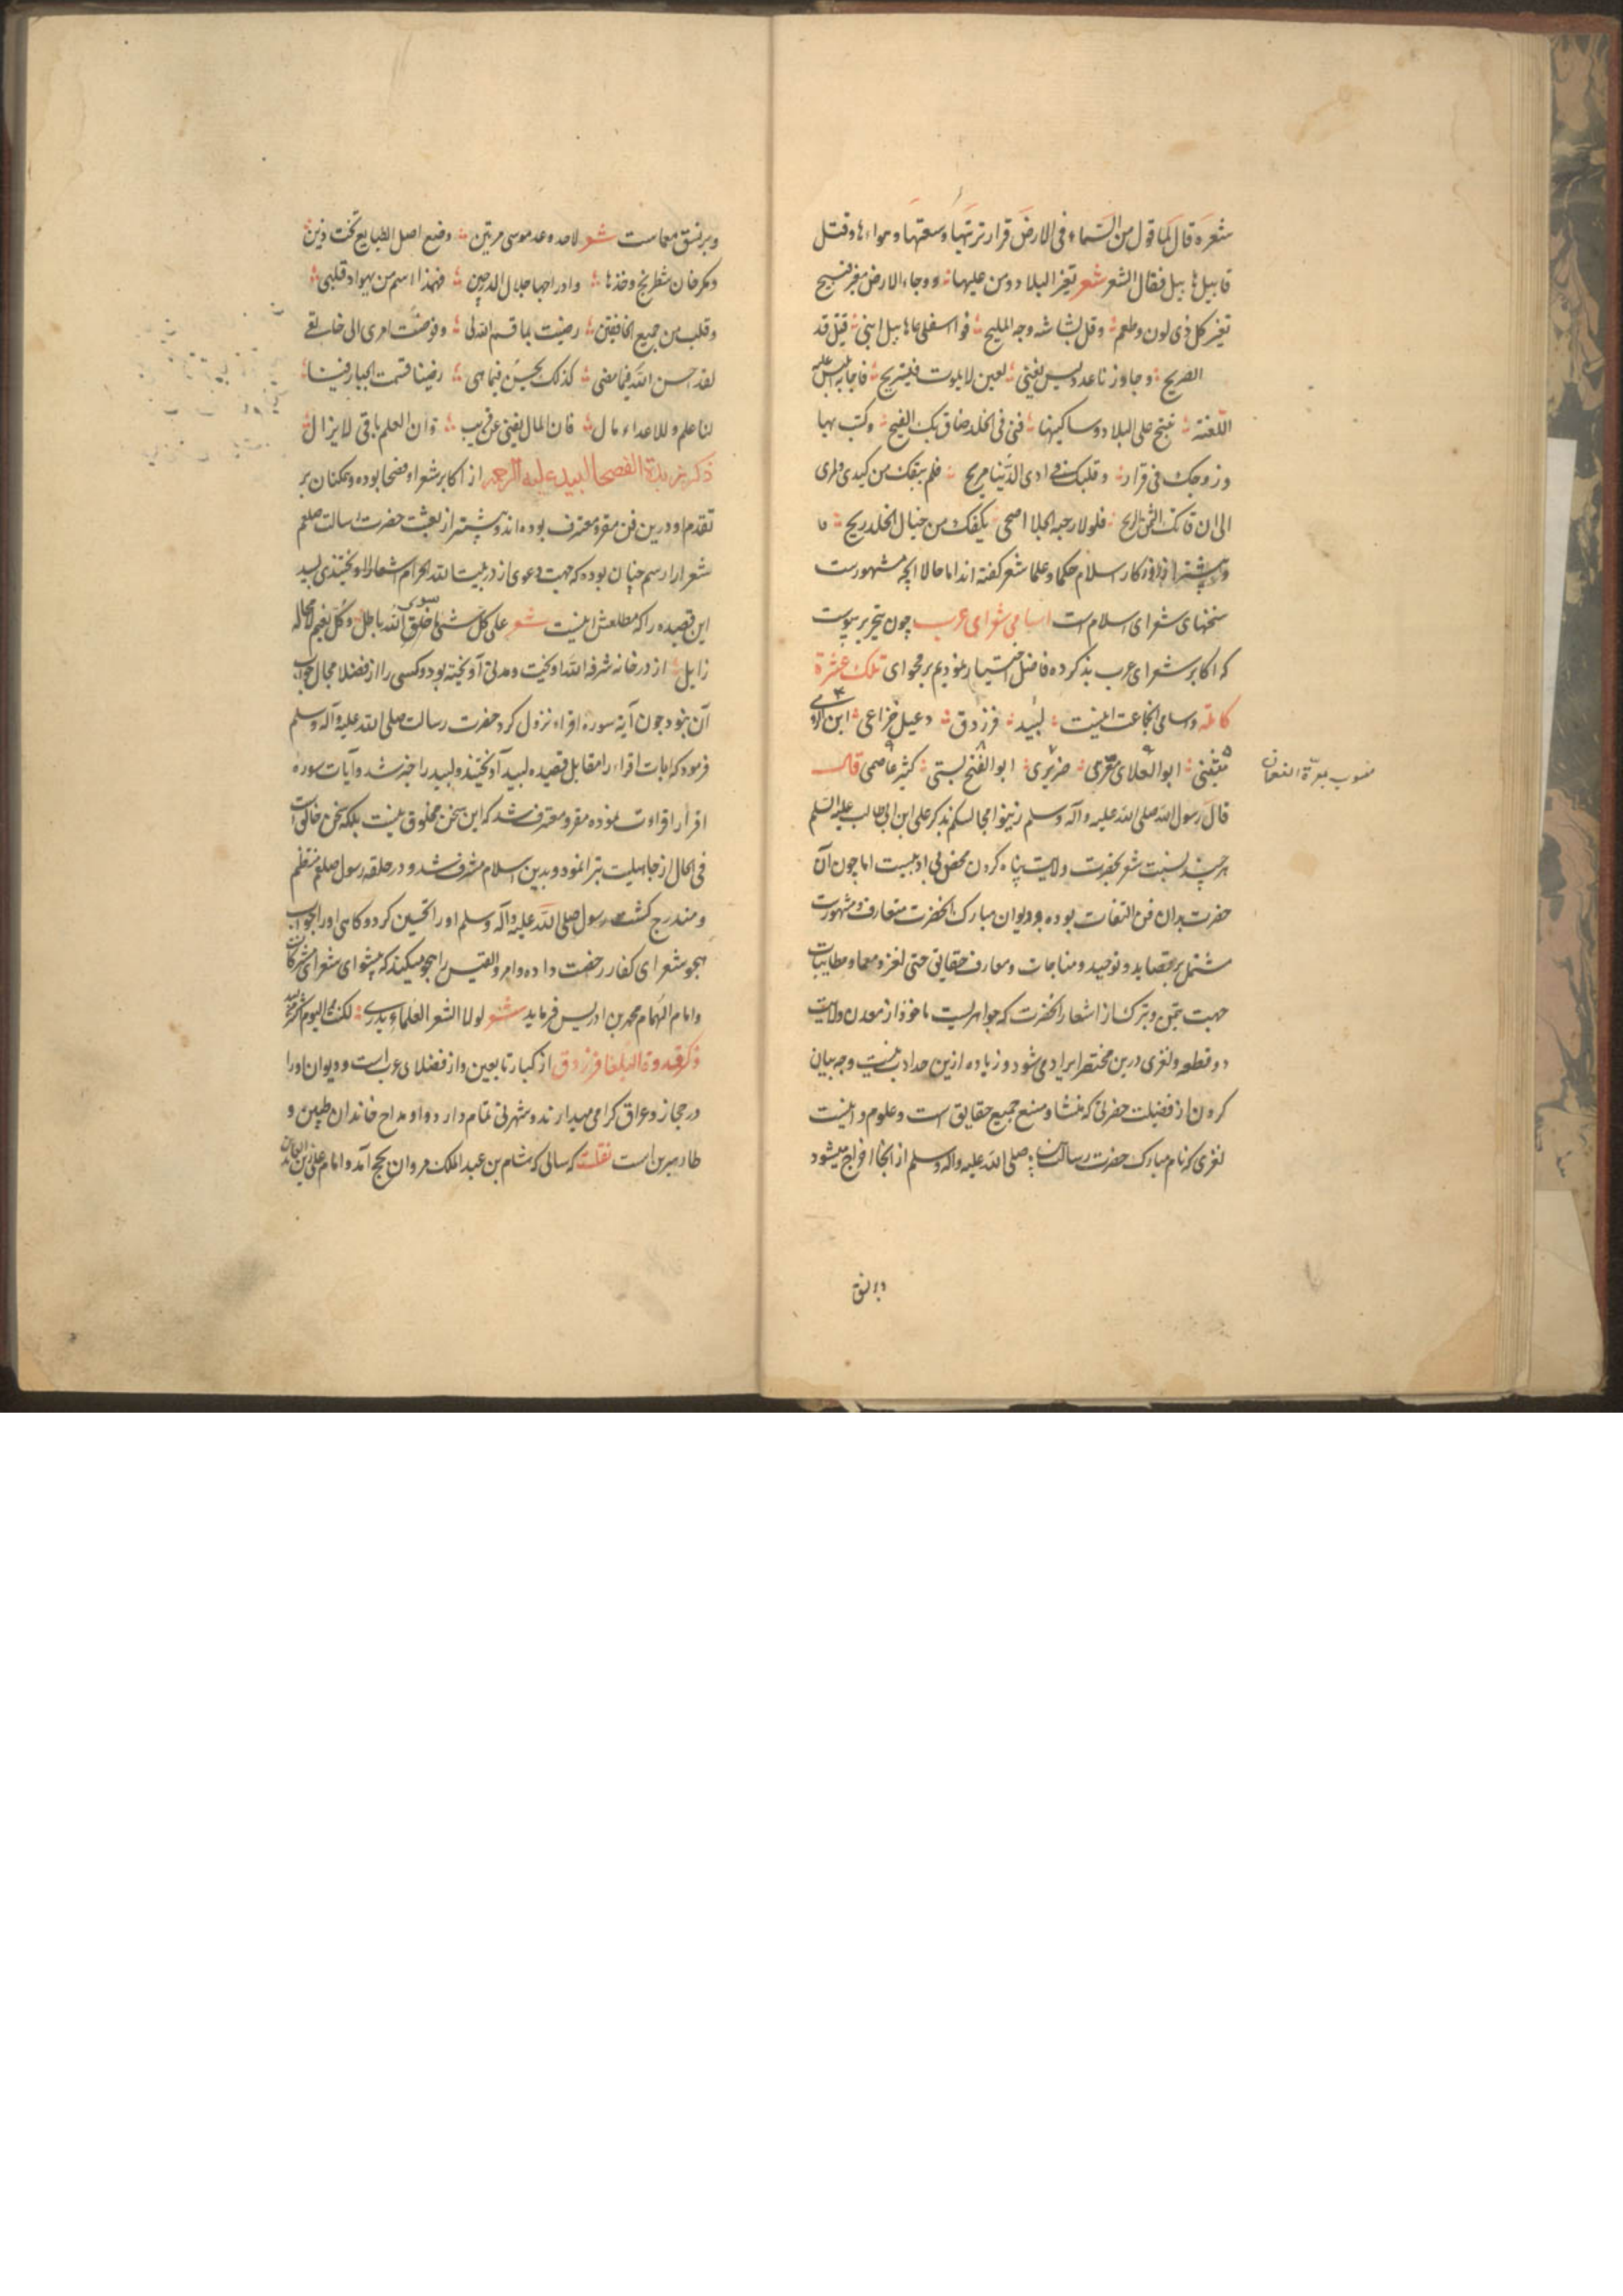 شعره قال لما قول من السماء فی الارض قرار تربتها وسعتها و هواءها و قتل
قابیل هابیل فقال الشعر شعر تغیر البلاد و من علیها و وجاء الارض مغبر قبیح
تغیر کل ذی لون وطعم وقل بشاشه وجه الملیح فوا اسفی علی هابیل ابنی قتل قد
الضریح وجاوزنا عد ولیس یغنی لعین لایموت فنستریح فاجابه ابلیس علیه
اللعنة تنح علی البلاد وساکنیها فنی فی الخلد ضاق بک الفیح وکنت بها
و زوجک فی قرار و قلبک من اذی الدنیا مریح فلم ینفک من کیدی و مکری
الی ان فاتک الثمن الربیح فلولا رحمة الجبار اضحی بکفک من جنال الخلد ریح
و پیشتر از روزکار اسلام حکما و علما شعر کفته اند اما حالا انچه مشهورست
سخنهای شعرای اسلام است اسامی شعرای عرب چون بتحریر پیوست
که اکابر شعرای عرب بذکر ده فاضل اختیار نمودیم بر فحوای تلک عشرة
کامله و سامی انجماعت اینست لبید فرزدق دعبل خزاعی ابن الرومی
متنبی ابوالعلای معری حریری ابوالفتح بستی کثیر عاصمی قال
منسوب بمعرّة النعمان
قال رسول الله صلی الله علیه و آله وسلم زینوا مجالسکم بذکر علی ابن ابی طالب علیه السلم
هر چند نسبت شعر بحضرت ولایت پناه کردن محض بی ادبیست اما چون آن
حضرت بدان فن التفات بوده و دیوان مبارک انحضرت متعارف و مشهورست
مشتمل بر قصاید و توحید و مناجات و معارف حقایق حتی لغز و معما و مطایبات
جهت تیمن و تبرک از اشعار انحضرت که جواهریست ماخوذ از معدن ولایت
دو قطعه و لغزی درین مختصر ایراد می شود و زیاده ازین حد ادب نیست وجه بیان
کردن از فضیلت حضرتی که منشاء و منبع جمیع حقایق است و علوم و اینست
لغزی که نام مبارک حضرت رسالت صلی الله علیه و اله وسلم از انجا اخراج میشود
و برنسق
و برنسق معماست شعر لاحد وعد موسی مرتین وضع اصل الطبایع تحت ذین
وسکر خان شطرنج وخذها وادراجها خلال الدرجین فهذا اسم من یهواه قلبی
وقلب من جمیع الخافقین رضیت بما قسم الله لی وفوضت امری الی خالقی
لقد احسن الله فیما مضی کذلک یحسن فیما بقی رضینا قسمت الجبار فینا
لنا علم وللاعداء مال فان المال یفنی عن قریب وان العلم باقی لایزال
ذکر زبدة الفصحا لبید علیه الرحمه از اکابر شعرا و فصحا بوده و همکنان بر
تقدم او درین فن مقر و معترف بوده اند و پیشتر از بعثت حضرت رسالت صلعم
شعرا را رسم چنان بوده که جهت دعوی از در بیت الله الحرام اشعار را اویختندی لبید
این قصیده را که مطلعش اینست شعر علی کل شی ما خلق سوی الله باطل و کل نعیم لا محاله
زایل از در خانه شرفه الله اویخت و مدتی آویخته بود و کسی را از فضلا مجال جواب
آن نبود چون آیه سوره اقراء نزول کرد حضرت رسالت صلی الله علیه و آله وسلم
فرمود که آیات اقراء را مقابل قصیده لبید آویختند و لبید را خبر شد و آیات سوره
اقراء را قراءت نموده مقر و معترف شد که این سخن مخلوق نیست بلکه سخن خالق است
فی الحال از جاهلیت تبرا نمود و بدین اسلام مشرف شد و در حلقه رسول صلعم منتظم
و مندرج کشت رسول صلی الله علیه و آله وسلم او را تحسین کرد و کاهی او را بجواب
هجو شعرای کفار رخصت داده و امرو القیس را هجو میکند که پیشوای شعرای مشرکان است
و امام الهمام محمد بن ادریس فرماید شعر لولا الشعر العلماء یذری لکنت الیوم اشعر من لبید
ذکر قدوة البلغا فرزدق از کبار تابعین و از فضلای عرب است و دیوان او را
در حجاز و عراق کرامی میدارند و شهرتی تمام دارد و او مداح خاندان طیبین و
طاهرین است نقلست که سالی که هشام بن عبد الملک مروان بحج آمد و امام علی زین العابدین